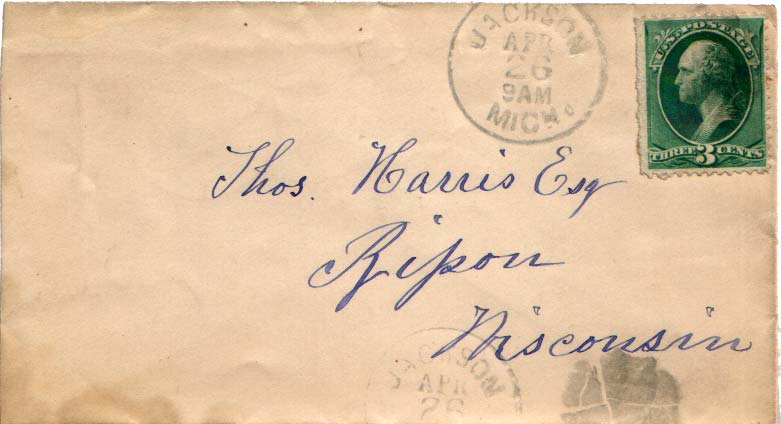 JACKSON
APR
26
9AM
MICH.
U.S. POSTAGE
THREE 3 CENTS
Thos. Harris Esq
Ripon
Wisconsin
JACKSON
APR
26